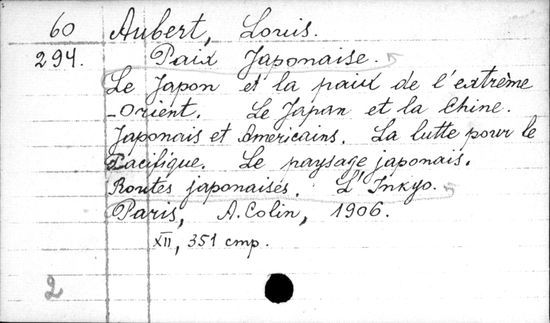 60 Aubert, Louis.
294. Paix Japonaise.
Le Japon et la paix de l'extrême
-Orient. Le Japan et la Chine.
Japonais et Américains. La lutte pour le
Pacifique. Le paysage japonais.
Routes japonaises. L'Inkyo.
Paris, A. Colin, 1906.
XII, 351 стр.
2